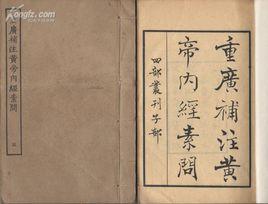 重廣補注黃
帝內經素問
四部叢刊子部
重廣補注黃帝內經素問
kongfz.com